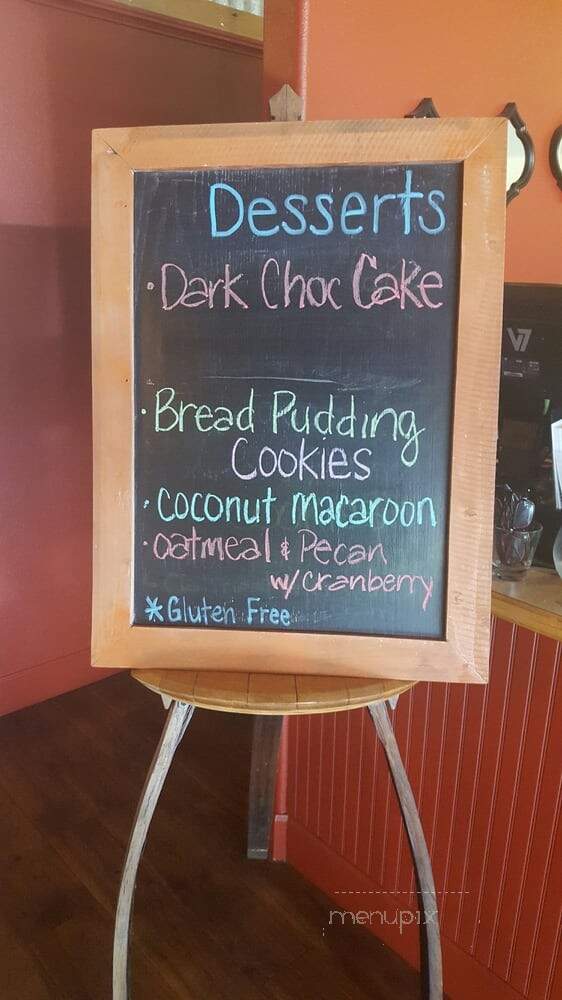 Desserts
• Dark Choc Cake
• Bread Pudding
Cookies
• coconut macaroon
• oatmeal & Pecan
w/ cranberry
* Gluten Free
V7
menupix